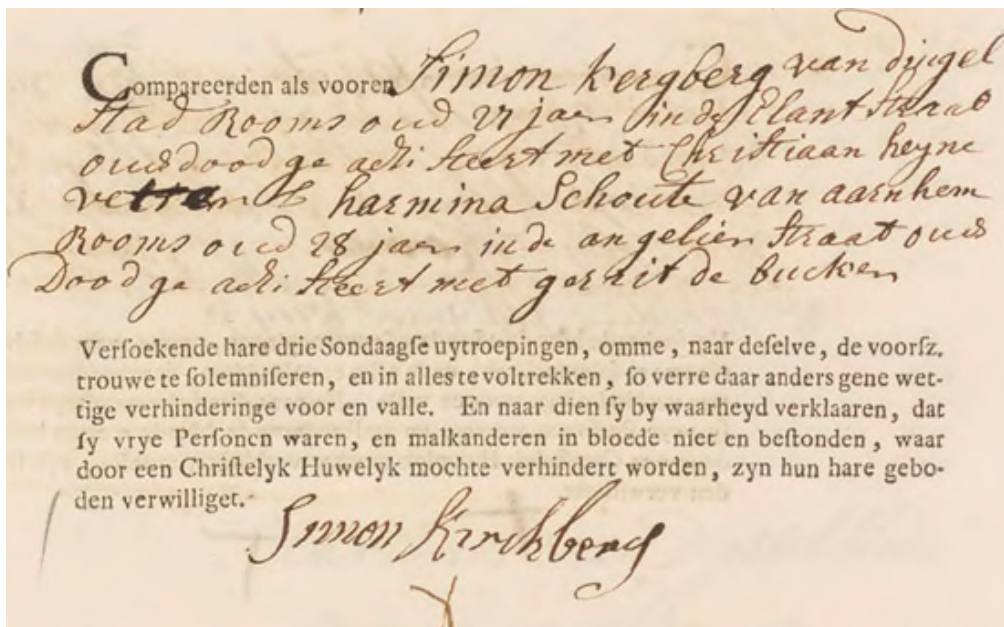 Compareerden als vooren Simon Kergberg van dijgel
Stad Rooms oud 27 jaer in de Elant Straat
ouds dood ge adsi steert met Christiaan heyne
harmina Schoute van aarnhem
Rooms oud 28 jaer in de angelier Straat ouds
Dood ge adsi steert met gerrit de bucker
Versoekende hare drie Sondaagse uytroepingen, omme, naar deselve, de voorsz.
trouwe te solemniseren, en in alles te voltrekken, so verre daar anders gene wet-
tige verhinderinge voor en valle. En naar dien sy by waarheyd verklaaren, dat
sy vrye Personen waren, en malkanderen in bloede niet en bestonden, waar
door een Christelyk Huwelyk mochte verhindert worden, zyn hun hare gebo-
den verwilliget.
Simon Kirchberg